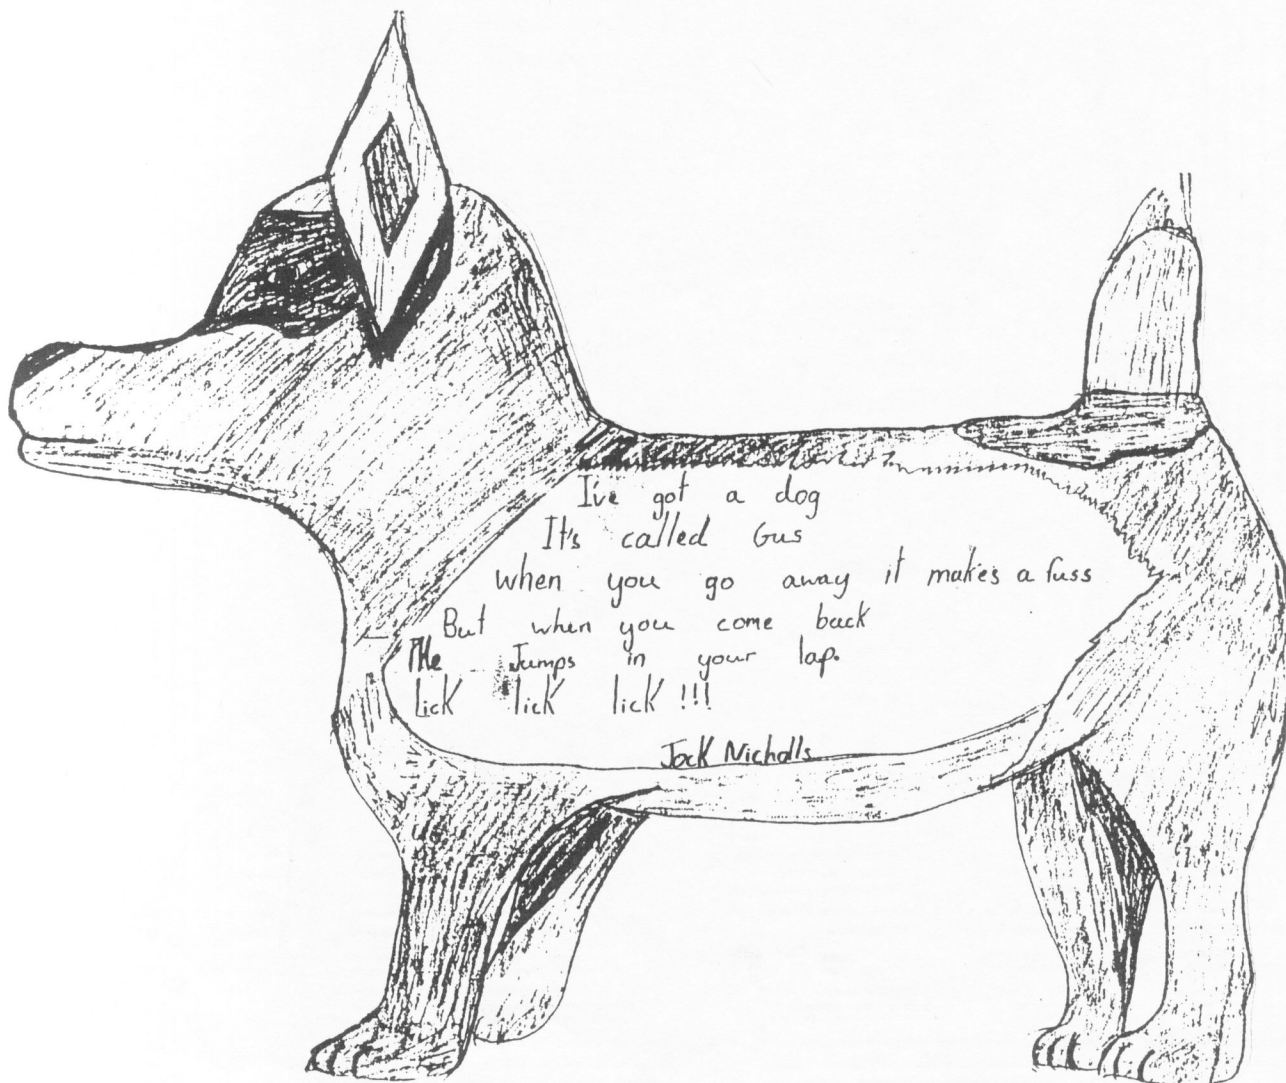 I've got a dog
It's called Gus
when you go away it makes a fuss
But when you come back
He Jumps in your lap.
Lick lick lick !!!
Jack Nicholls